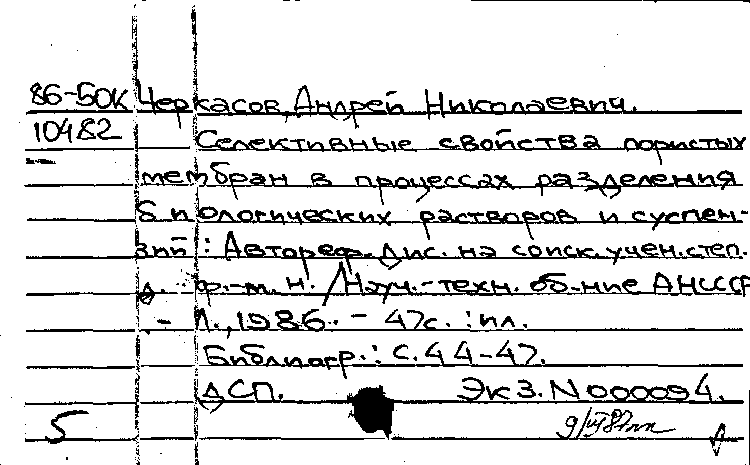 86-50К Черкасов, Андрей Николаевич.
10482 Селективные свойства пористых
мембран в процессах разделения
биологических растворов и суспен-
зий : Автореф. Дис. на соиск. учен. степ.
д. ф.-м. н. / Науч.-техн. об-ние АН СССР
. - Л., 1986. - 47с. : ил.
Библиогр.: с. 44-47.
ДСП. Экз. N 000094.
5